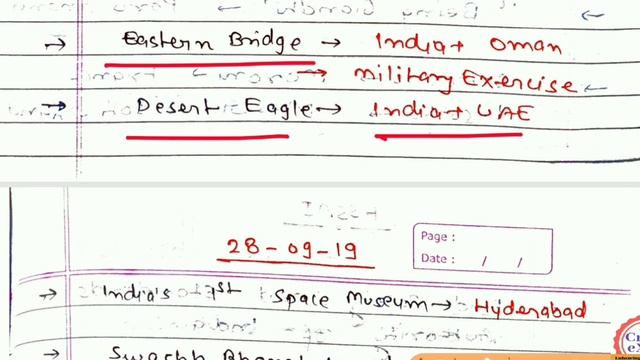 → Eastern Bridge → India + Oman
→ military Exercise
→ Desert Eagle → India + UAE
28-09-19
Page :
Date : / /
→ India's 1st Space Museum → Hyderabad
→ Swachh